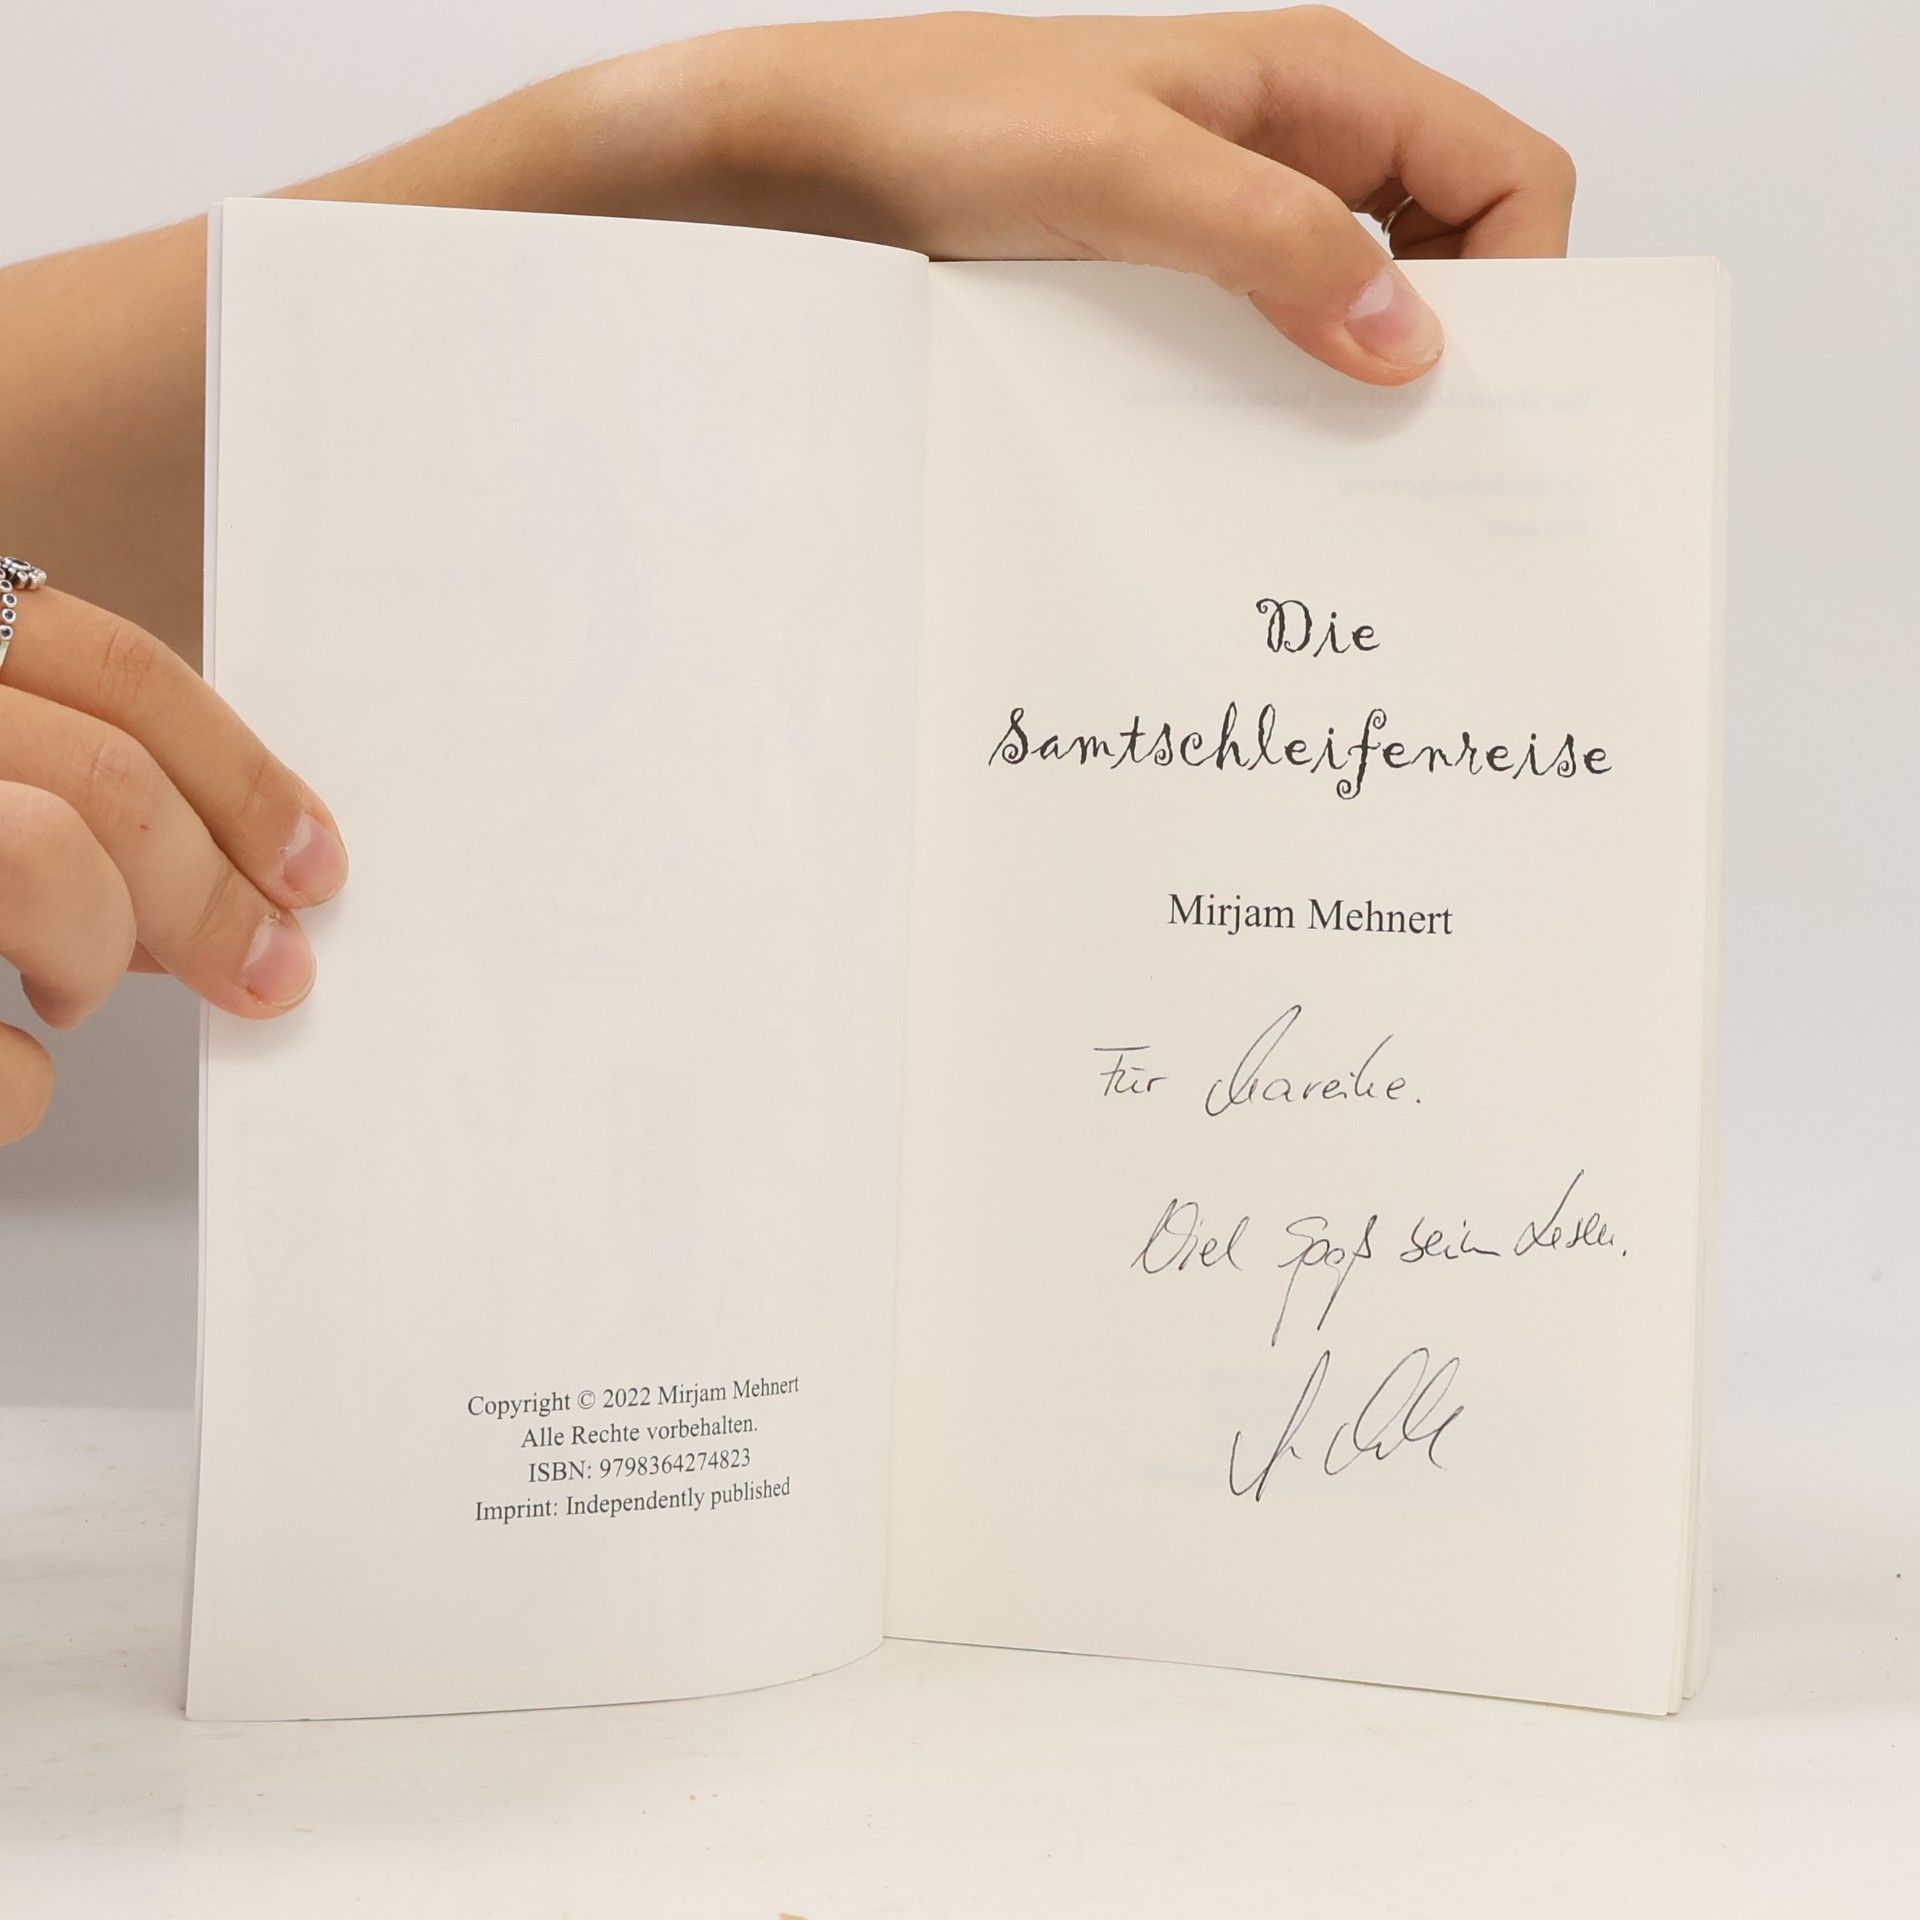 Copyright © 2022 Mirjam Mehnert
Alle Rechte vorbehalten.
ISBN: 9798364274823
Imprint: Independently published
Die
Samtschleifenreise
Mirjam Mehnert
Für Mareike.
Viel Spaß beim Lesen.